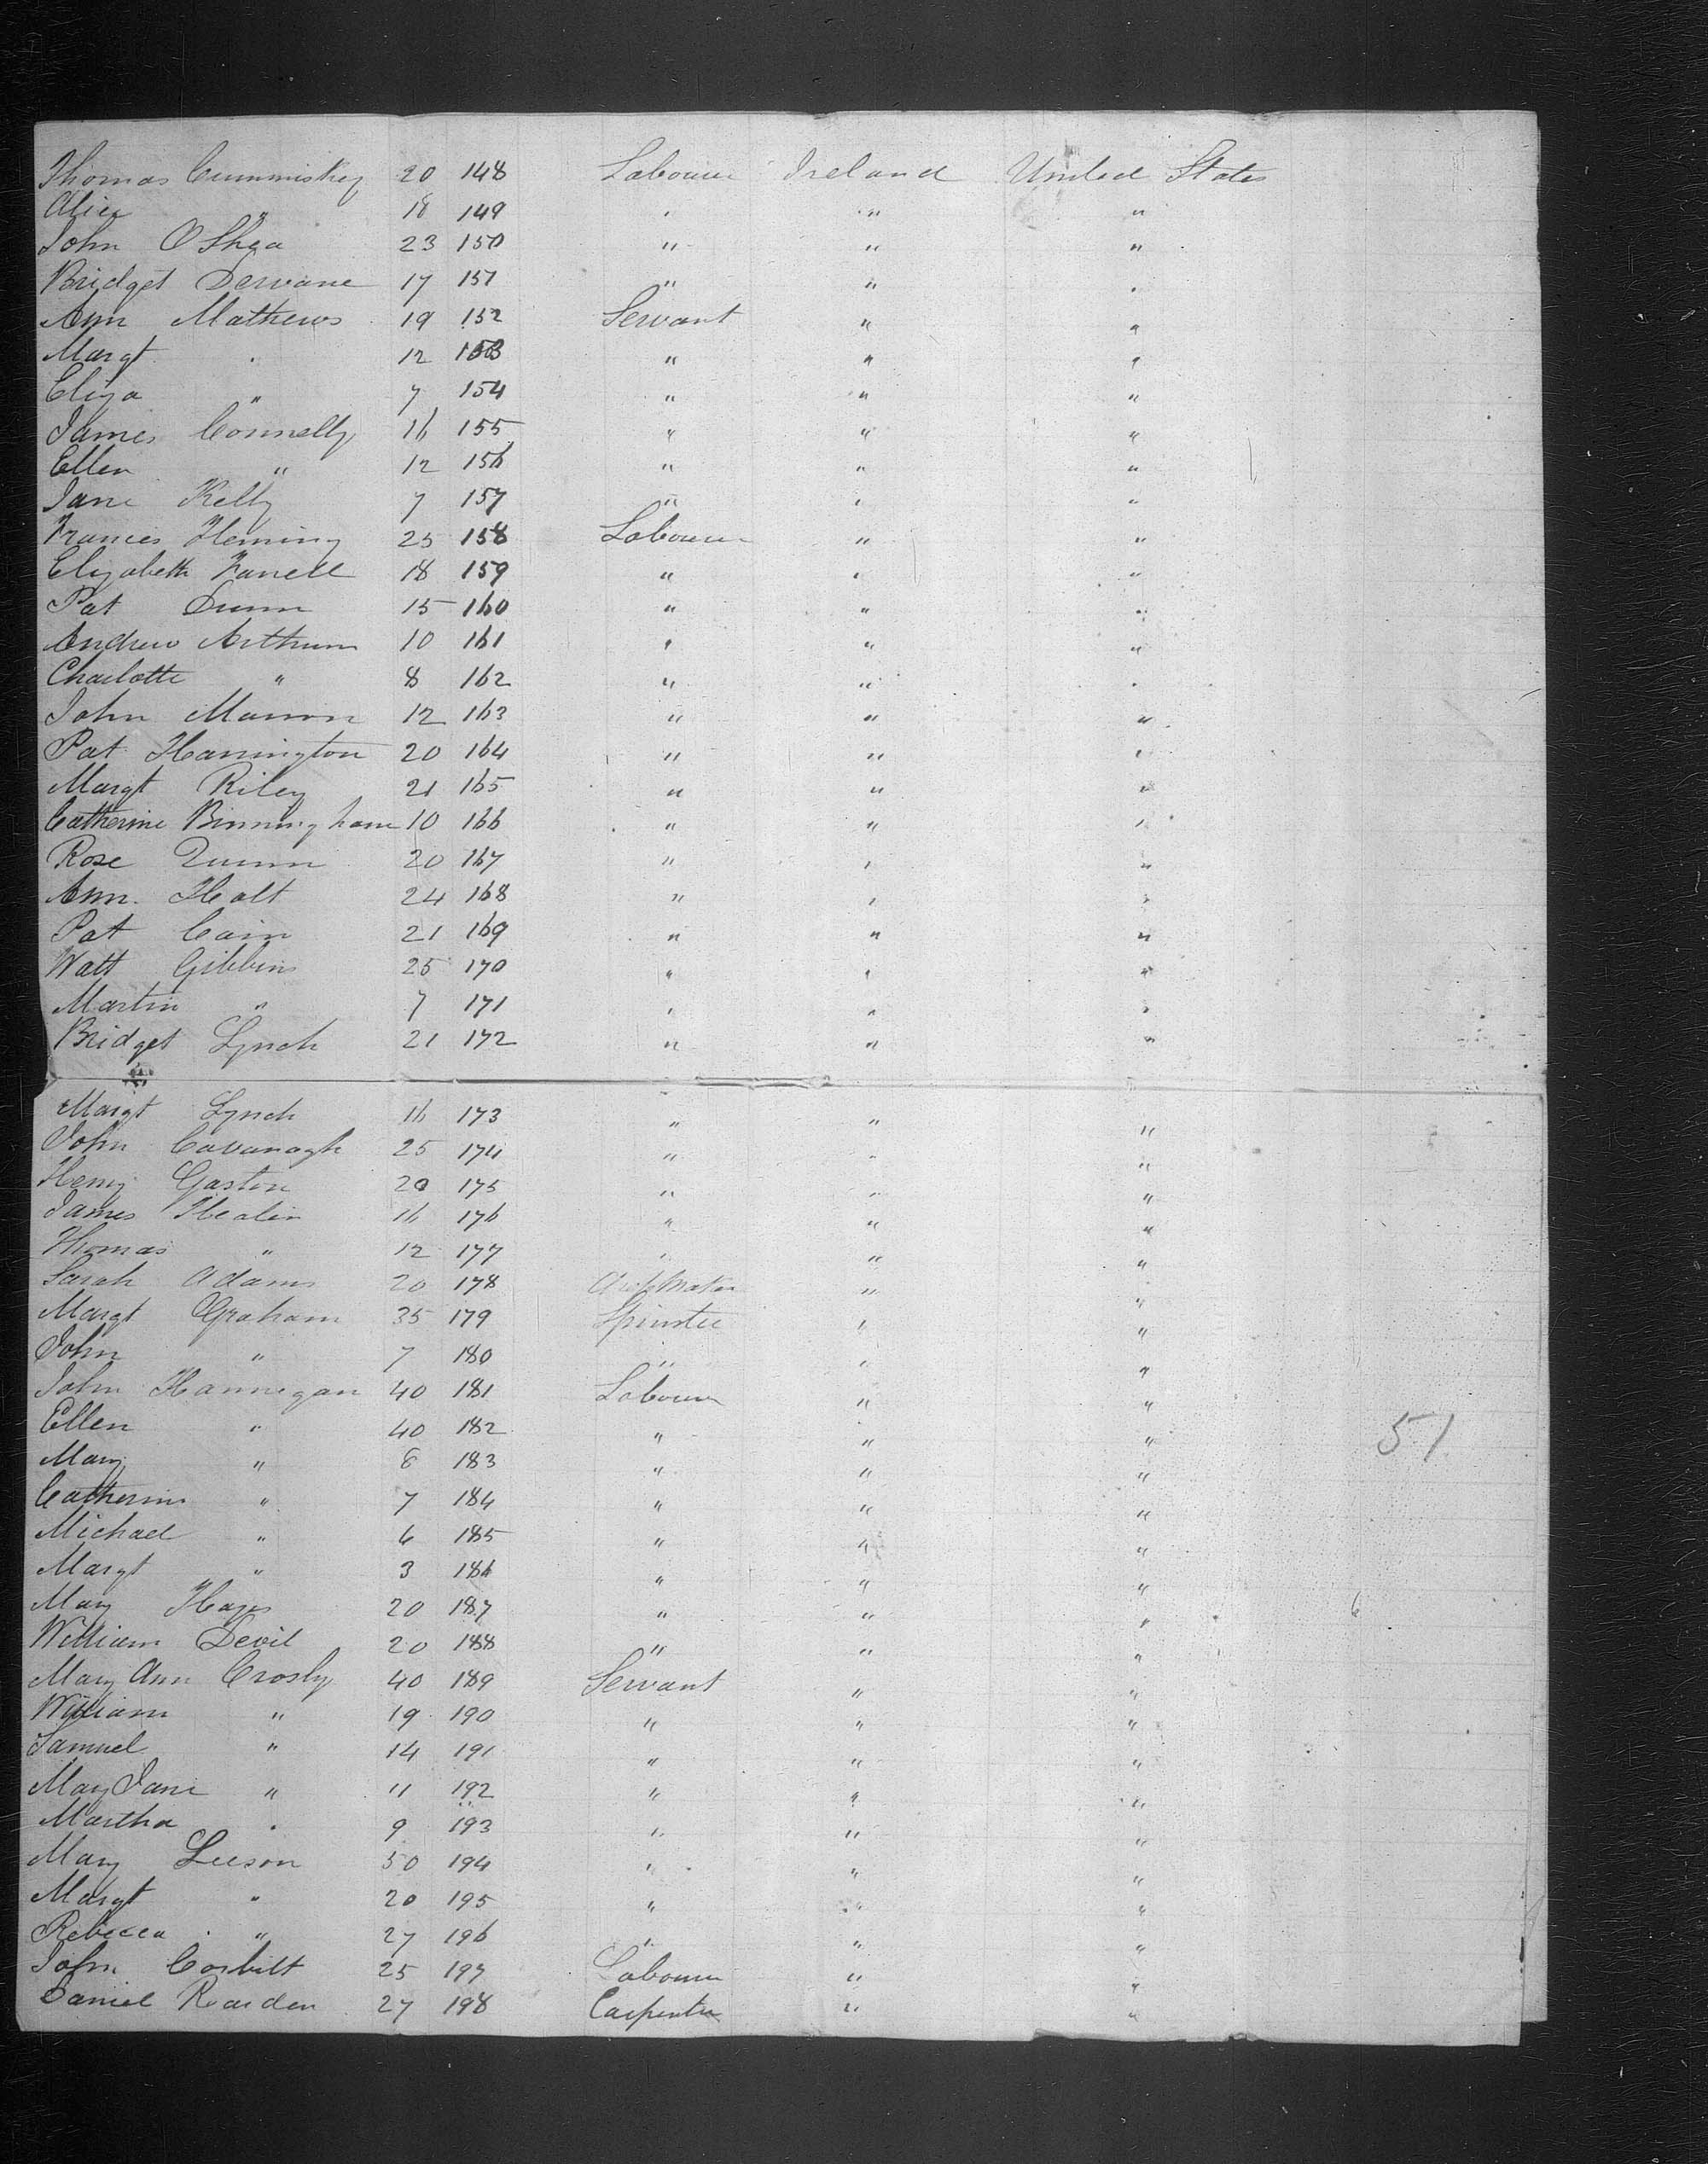 Thomas Cummiskey 20 148 Labourer Ireland United States
Alice " 18 149 " " "
John O Shea 23 150 " " "
Bridget Dervane 17 151 " " "
Ann Mathews 19 152 Servant " "
Margt " 12 153 " " "
Eliza " 7 154 " " "
James Connelly 16 155 " " "
Ellen " 12 156 " " "
Jane Kelly 7 157 " " "
Frances Fleming 25 158 Labourer " "
Elizabeth Farrell 18 159 " " "
Pat Dunn 15 160 " " "
Andrew Arthurs 10 161 " " "
Charlotte " 8 162 " " "
John Marron 12 163 " " "
Pat Harrington 20 164 " " "
Margt Riley 21 165 " " "
Catherine Binningham 10 166 " " "
Rose Quinn 20 167 " " "
Ann Holt 24 168 " " "
Pat Cain 21 169 " " "
Watt Gibbins 25 170 " " "
Martin " 7 171 " " "
Bridget Lynch 21 172 " " "
Margt Lynch 16 173 " " "
John Cavanagh 25 174 " " "
Henry Gaston 20 175 " " "
James 16 176 " " "
Thomas " 12 177 " " "
Sarah Adams 20 178 " "
Margt Graham 35 179 Spinster " "
John " 7 180 " " "
John Hannegan 40 181 Labourer " "
Ellen " 40 182 " " "
Mary " 8 183 " " "
Catherine " 7 184 " " "
Michael " 6 185 " " "
Margt " 3 186 " " "
Mary Hayes 20 187 " " "
William Devil 20 188 " " "
Mary Ann Crosby 40 189 Servant " "
William " 19 190 " " "
Samuel " 14 191 " " "
Mary Jane " 11 192 " " "
Martha " 9 193 " " "
Mary Leeson 50 194 " " "
Margt " 20 195 " " "
Rebecca " 27 196 " " "
John Corbitt 25 197 Labourer " "
Daniel Rearden 27 198 Carpenter " "
51